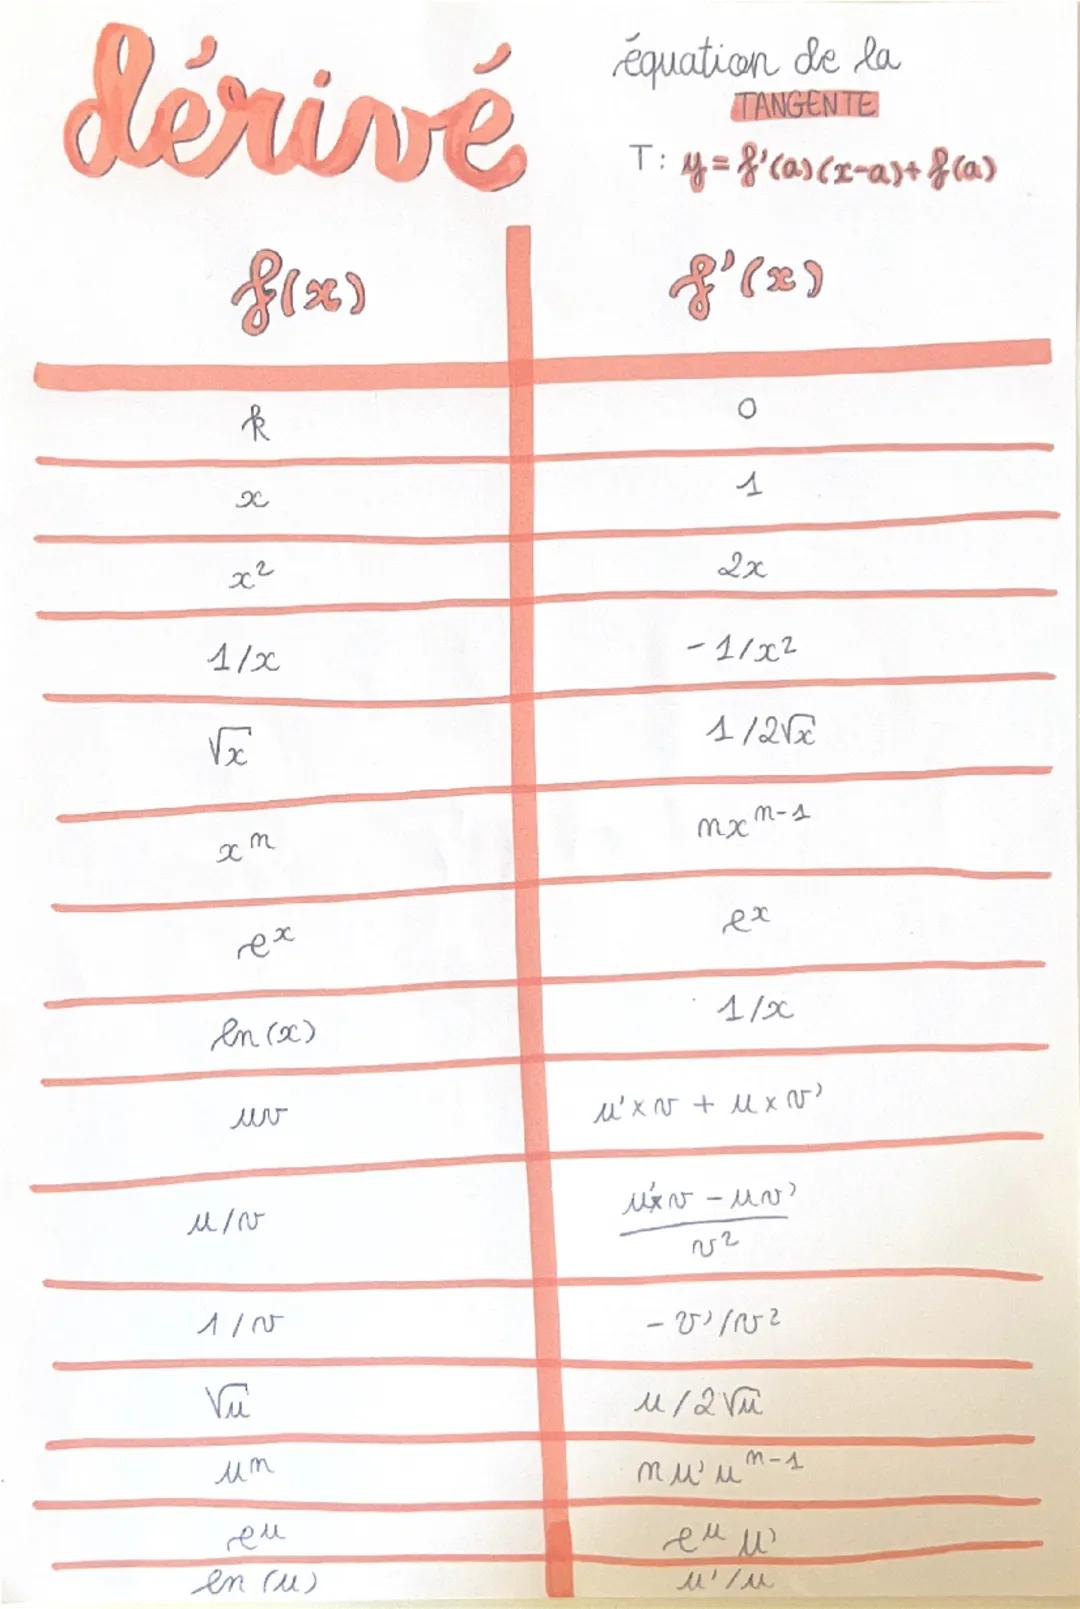 dérivé
équation de la
TANGENTE
T: y = f'(a)(x-a)+ f(a)
f(x) f'(x)
k 0
x 1
x² 2x
1/x - 1/x²
√x 1/2√x
xⁿ nxⁿ⁻¹
eˣ eˣ
ln(x) 1/x
uv u'×v + u×v'
u/v u'×v - uv'
v²
1/v - v'/v²
√u u/2√u
uⁿ nu'uⁿ⁻¹
eᵘ eᵘ u'
ln(u) u'/u